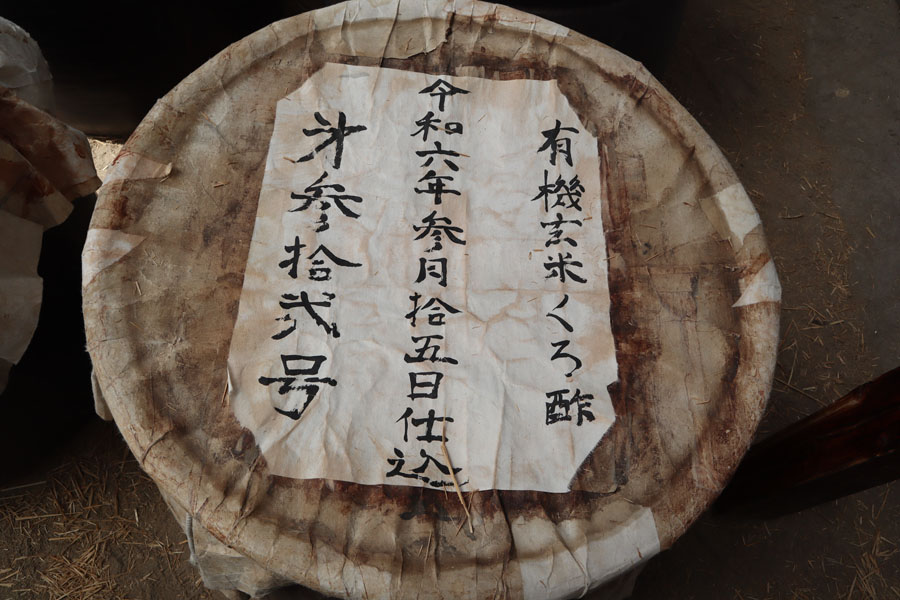 有機玄米くろ酢
令和六年参月拾五日仕込
第参拾弐号